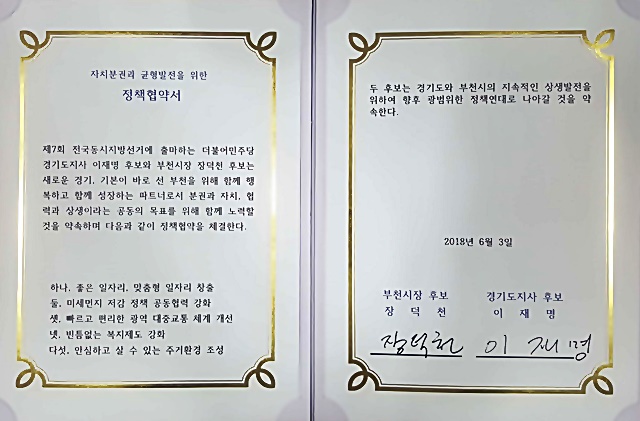 자치분권리 균형발전을 위한
정책협약서
제7회 전국동시지방선거에 출마하는 더불어민주당
경기도지사 이재명 후보와 부천시장 장덕천 후보는
새로운 경기, 기본이 바로 선 부천을 위해 함께 행
복하고 함께 성장하는 파트너로서 분권과 자치, 협
력과 상생이라는 공동의 목표를 위해 함께 노력할
것을 약속하며 다음과 같이 정책협약을 체결한다.
하나, 좋은 일자리, 맞춤형 일자리 창출
둘, 미세먼지 저감 정책 공동협력 강화
셋, 빠르고 편리한 광역 대중교통 체계 개선
넷, 빈틈없는 복지제도 강화
다섯, 안심하고 살 수 있는 주거환경 조성
두 후보는 경기도와 부천시의 지속적인 상생발전을
위하여 향후 광범위한 정책연대로 나아갈 것을 약
속한다.
2018년 6월 3일
부천시장 후보 경기도지사 후보
장덕천 이재명
장덕천 이재명